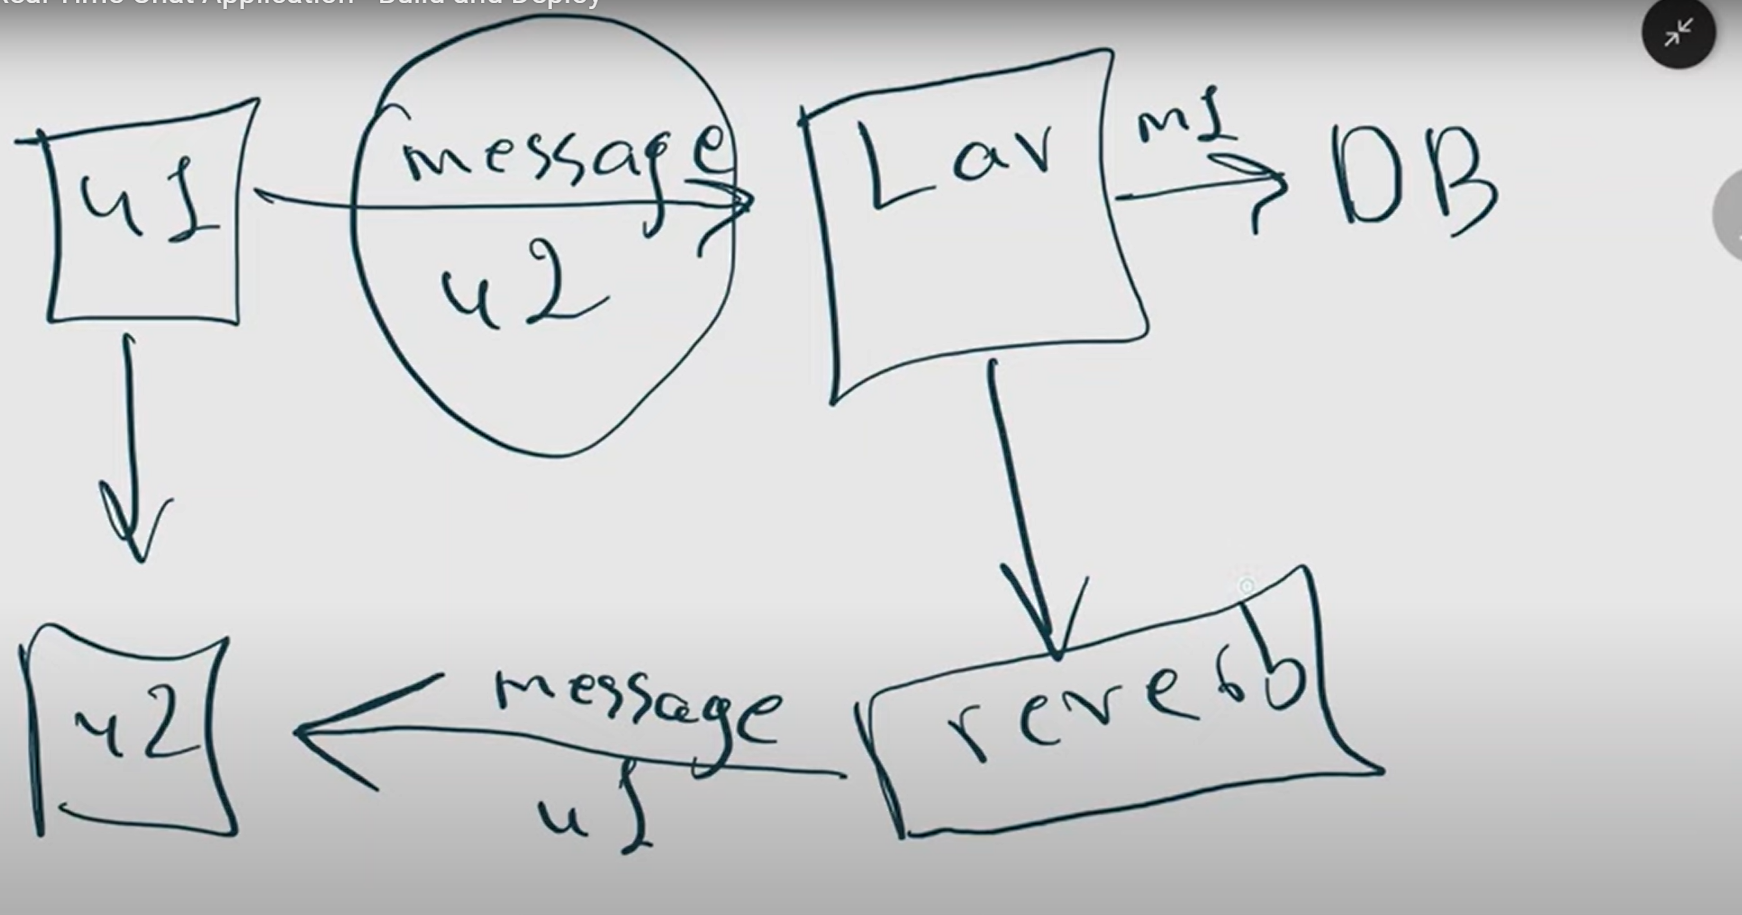 Real Time Chat Application - Build and Deploy
u1
message
u2
Lav
m1
DB
u2
message
u1
reverb